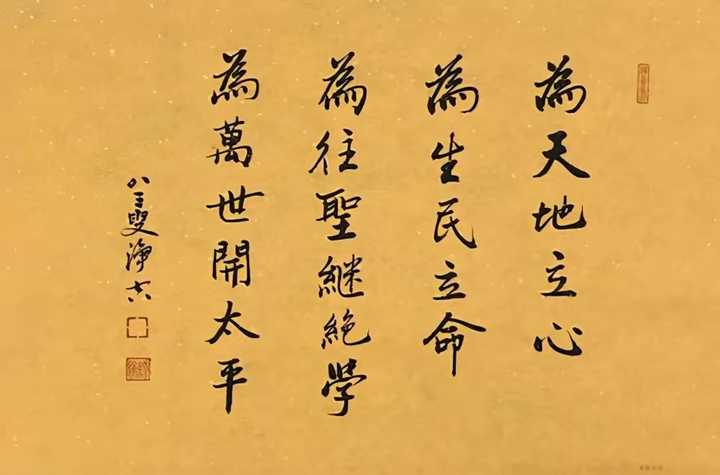 為天地立心
為生民立命
為往聖继絶學
為萬世開太平
八三叟淨空